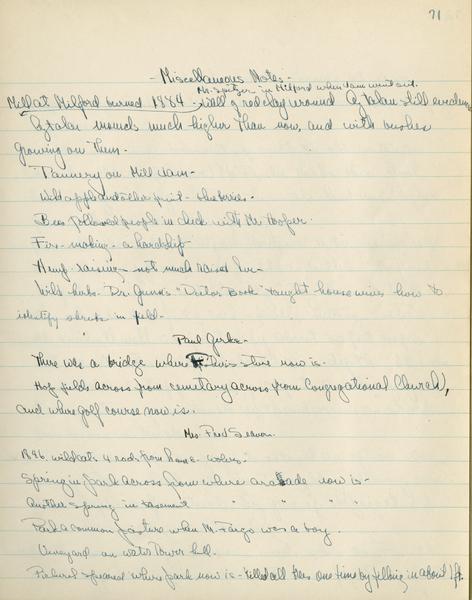 71
- Miscellaneous Notes -
Mr. Spitzer in Milford when dam went out.
Mill at Milford burned 1884 - wall of red clay around Aztalan still evident
Aztalan mounds much higher than now, and with bushes
growing on them.
Tannery on Mill dam -
Wild apple and other fruit - cherries -
Bees followed people in check with Mr. Hooper.
Fire-making - a hardship
Hemp-raising - not much raised here -
Wild herbs - Dr. Gunn's "Doctor Book" taught housewives how to
identify shrubs in field -
Paul Gerke -
There was a bridge where store now is -
Hop fields across from cemetary across from Congregational Church,
and where golf course now is.
Mrs. Fred Seavor.
1896. wildcats 4 rods from home - wolves -
Spring in park across from where arcade now is -
Another spring in basement " " " "
Park a common pasture when Mr. Fargo was a boy.
Vineyard on water tower hill.
where park now is - killed all trees one time by filling in about 1 ft.